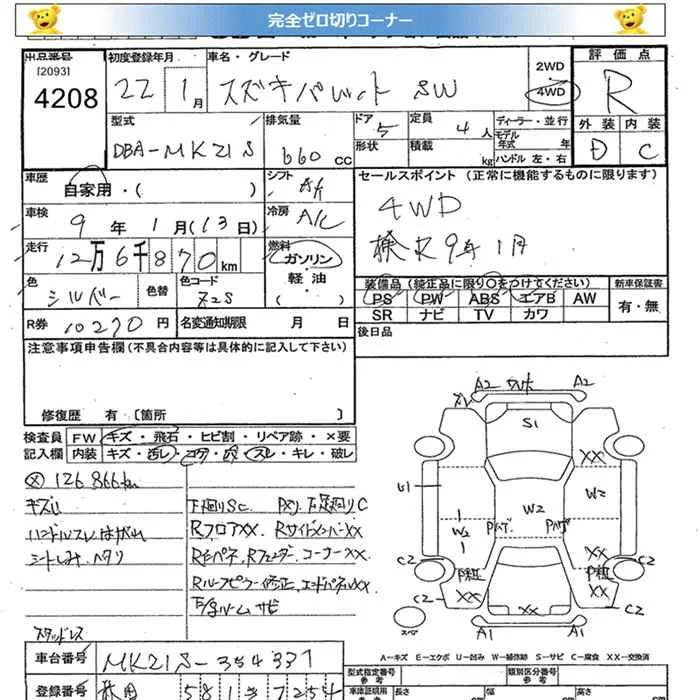 完全ゼロ切りコーナー
出品番号
[2093]
4208
初度登録年月
22 1月
車名・グレード
スズキパレット SW
2WD
4WD
評価点
R
型式
DBA-MK21S
排気量
660 cc
ドア
5
定員
4人
形状
積載
kg
ディーラー・並行
モデル年式
年
ハンドル 左・右
外装
内装
D
C
車歴
自家用・( )
シフト
冷房
A/C
セールスポイント (正常に機能するものに限ります)
4WD
検R9年1月
車検
9年1月(13日)
走行
12万6千870km
燃料
ガソリン
軽・油
( )
色
シルバー
色替
色コード
Z2S
装備品 (純正品に限り○をつけてください)
新車保証書
PS PW ABS エアB AW
有・無
SR ナビ TV カワ
R券 10270円
名変通知期限 月 日
後日品
注意事項申告欄(不具合内容等は具体的に記入して下さい)
修復歴 有 〔箇所 〕
検査員記入欄
FW キズ・飛石・ヒビ割・リペア跡・×要
内装 キズ・汚レ・コゲ・穴・スレ・キレ・破レ
126,866km
キズU
ハンドルスレ・はがれ
シートしみ、ヘタリ
下廻りSC、Pメリ、下足廻りC
RフロアXX、RサイドメンバーXX
Rピペネ、Rフェンダー、コーナーXX、
Rルーフピラー修正、エンドパネルXX
スタッドレス
A2
A2
S1
XX
U1
W2
W2
W2
Pハゲ
Pハゲ
XX
C2
C2
XX
XX
C2
C2
XX
A1
A1
スペア
A-キズ E-エクボ U-凹み W-補修跡 S-サビ C-腐食 XX-交換済
車台番号
MK21S-354337
型式指定番号
類別区分番号
登録番号
長さ
幅
高さ